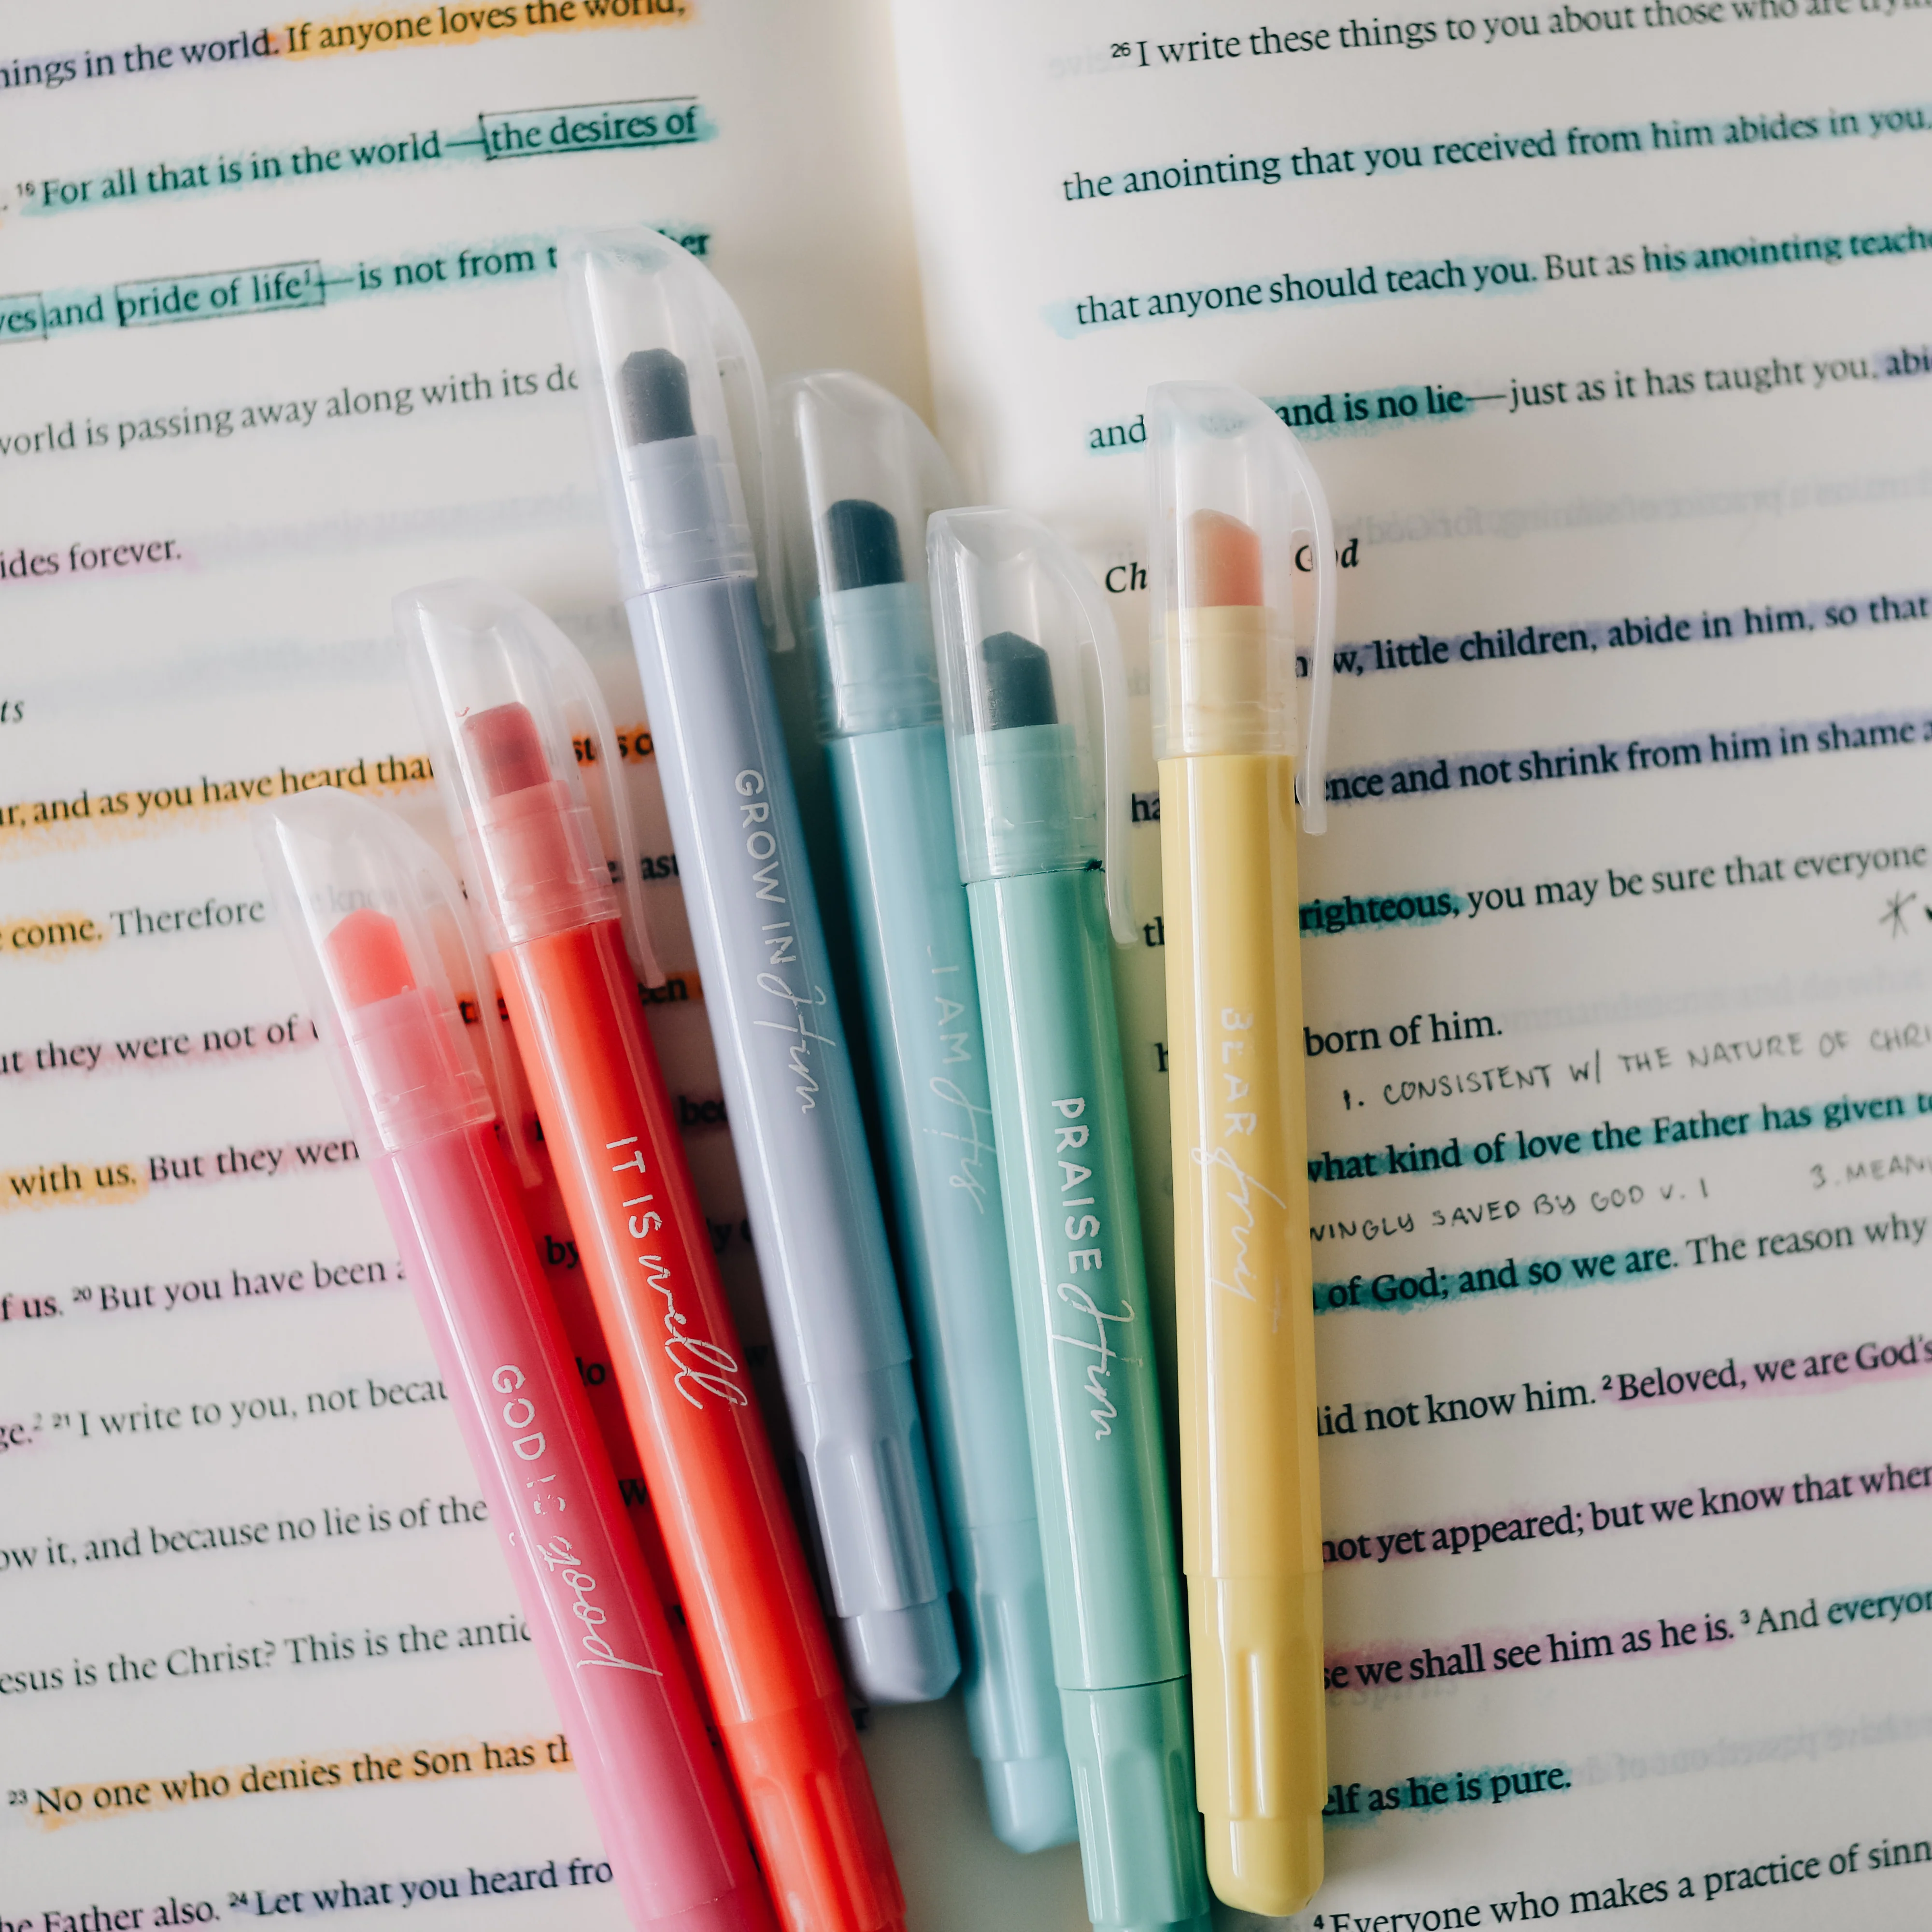 hings in the world. If anyone loves the world,
. 16 For all that is in the world—the desires of
yes and pride of life1—is not from t er
world is passing away along with its de
ides forever.
ts
ur, and as you have heard that
come. Therefore
ut they were not of
with us. But they wen
f us. 20 But you have been a by
ge.2 21 I write to you, not becau
ow it, and because no lie is of the
esus is the Christ? This is the antic
23 No one who denies the Son has th
he Father also. 24 Let what you heard fro
26 I write these things to you about those who are tryin
the anointing that you received from him abides in you,
that anyone should teach you. But as his anointing teache
and and is no lie—just as it has taught you, abi
Ch God
now, little children, abide in him, so that
ha ence and not shrink from him in shame a
th righteous, you may be sure that everyone
h born of him.
1. CONSISTENT W/ THE NATURE OF CHRI
what kind of love the Father has given to
VINGLY SAVED BY GOD V. 1 3. MEANI
of God; and so we are. The reason why
did not know him. 2 Beloved, we are God's
not yet appeared; but we know that when
se we shall see him as he is. 3 And everyon
elf as he is pure.
4 Everyone who makes a practice of sinn
GOD IS good
IT IS well
GROW IN Him
I AM His
PRAISE Him
BEAR fruit